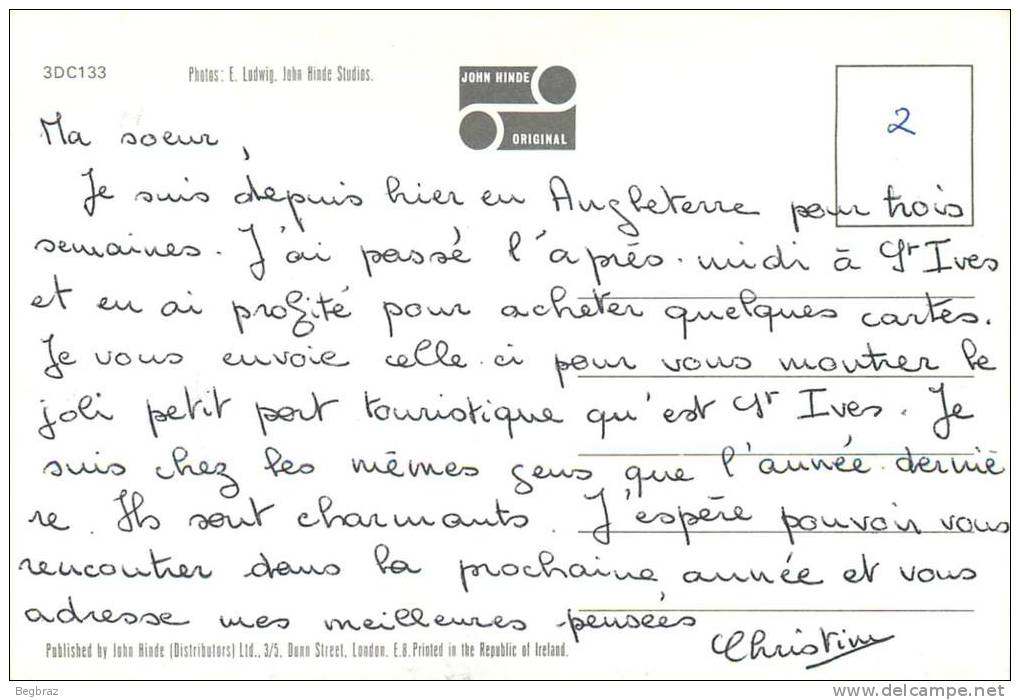 3DC133
Photos: E. Ludwig, John Hinde Studios.
JOHN HINDE
ORIGINAL
2
Ma soeur,
Je suis depuis hier en Angleterre pour trois
semaines. J'ai passé l'après-midi à St Ives
et en ai profité pour acheter quelques cartes.
Je vous envoie celle-ci pour vous montrer le
joli petit port touristique qu'est St Ives. Je
suis chez les mêmes gens que l'année derniè
re. Ils sont charmants. J'espère pouvoir vous
rencontrer dans la prochaine année et vous
adresse mes meilleures pensées
Christine
Published by John Hinde (Distributors) Ltd., 3/5, Dunn Street, London, E.8. Printed in the Republic of Ireland.
Begbraz
www.delcampe.net